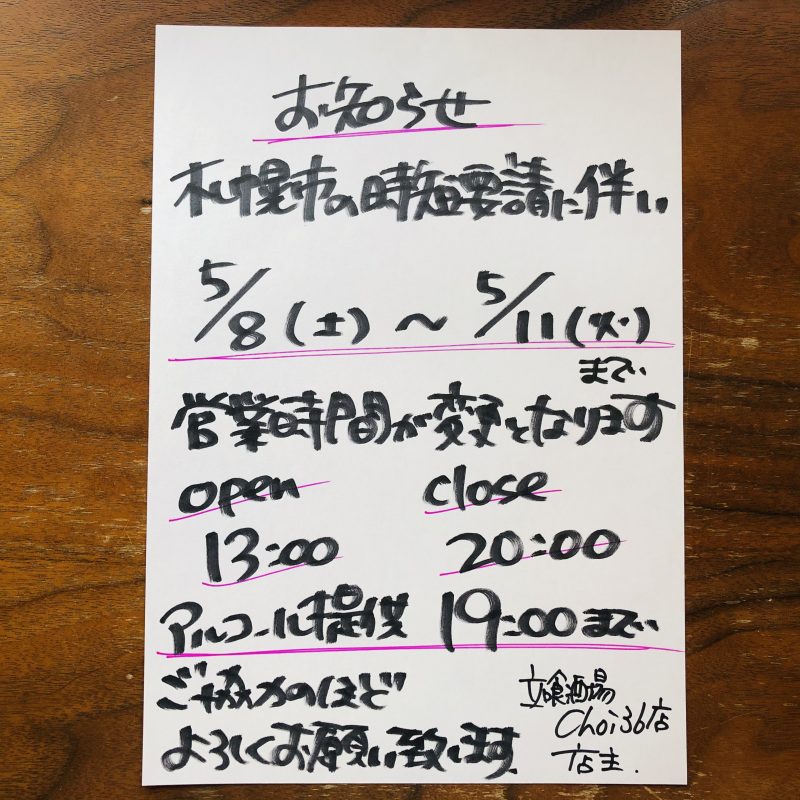 お知らせ
札幌市の時短要請に伴い
5/8(土)～5/11(火)
まで
営業時間が変更となります
open close
13:00 20:00
アルコール提供 19:00まで
ご協力のほど
よろしくお願い致します
立喰酒場
Choi36店
店主.